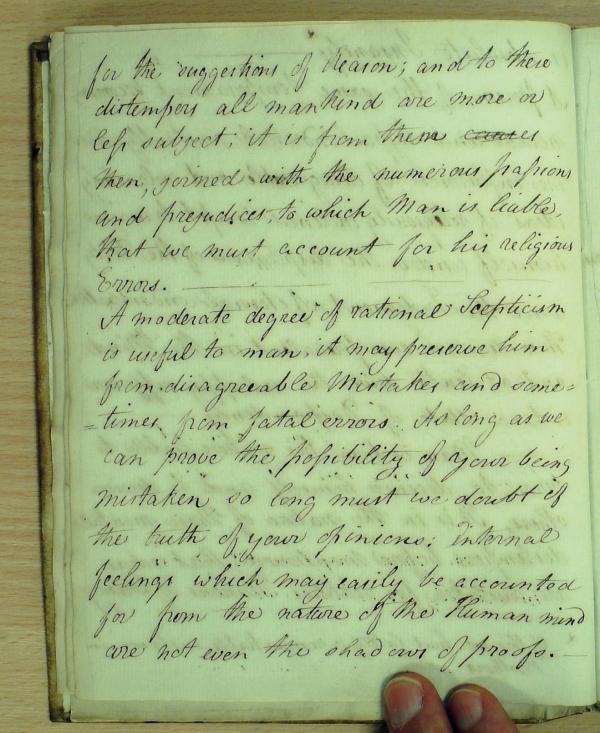 for the suggestions of Reason; and to these
distempers all mankind are more or
leſs subject; it is from them causes
then, joined with the numerous paſsions
and prejudices, to which Man is liable,
that we must account for his religious
Errors.
A moderate degree of rational Scepticism
is useful to man, it may preserve him
from disagreeable Mistakes and some=
=times from fatal errors. As long as we
can prove the poſsibility of your being
mistaken, so long must we doubt of
the truth of your opinions; internal
feelings which may easily be accounted
for from the nature of the Human mind
are not even the shadows of proofs.